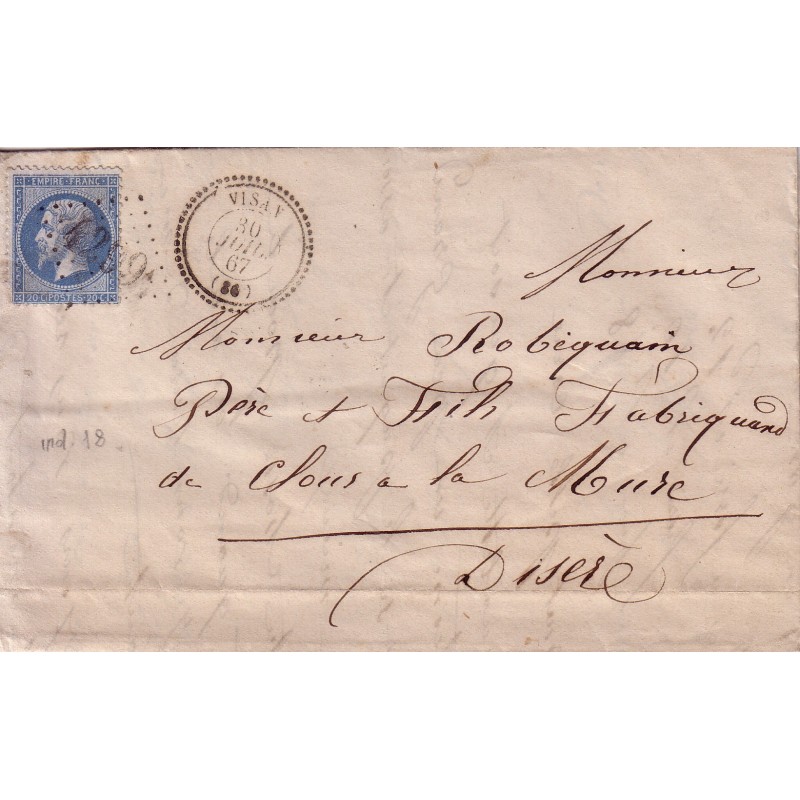 EMPIRE·FRANC
20 C POSTES 20 C
4259
VISAN
30
JUIL
67
(86)
Monsieur
Monsieur Robequain
Père et Fils Fabriquand
de Clous a la Mure
Disère
ind. 18